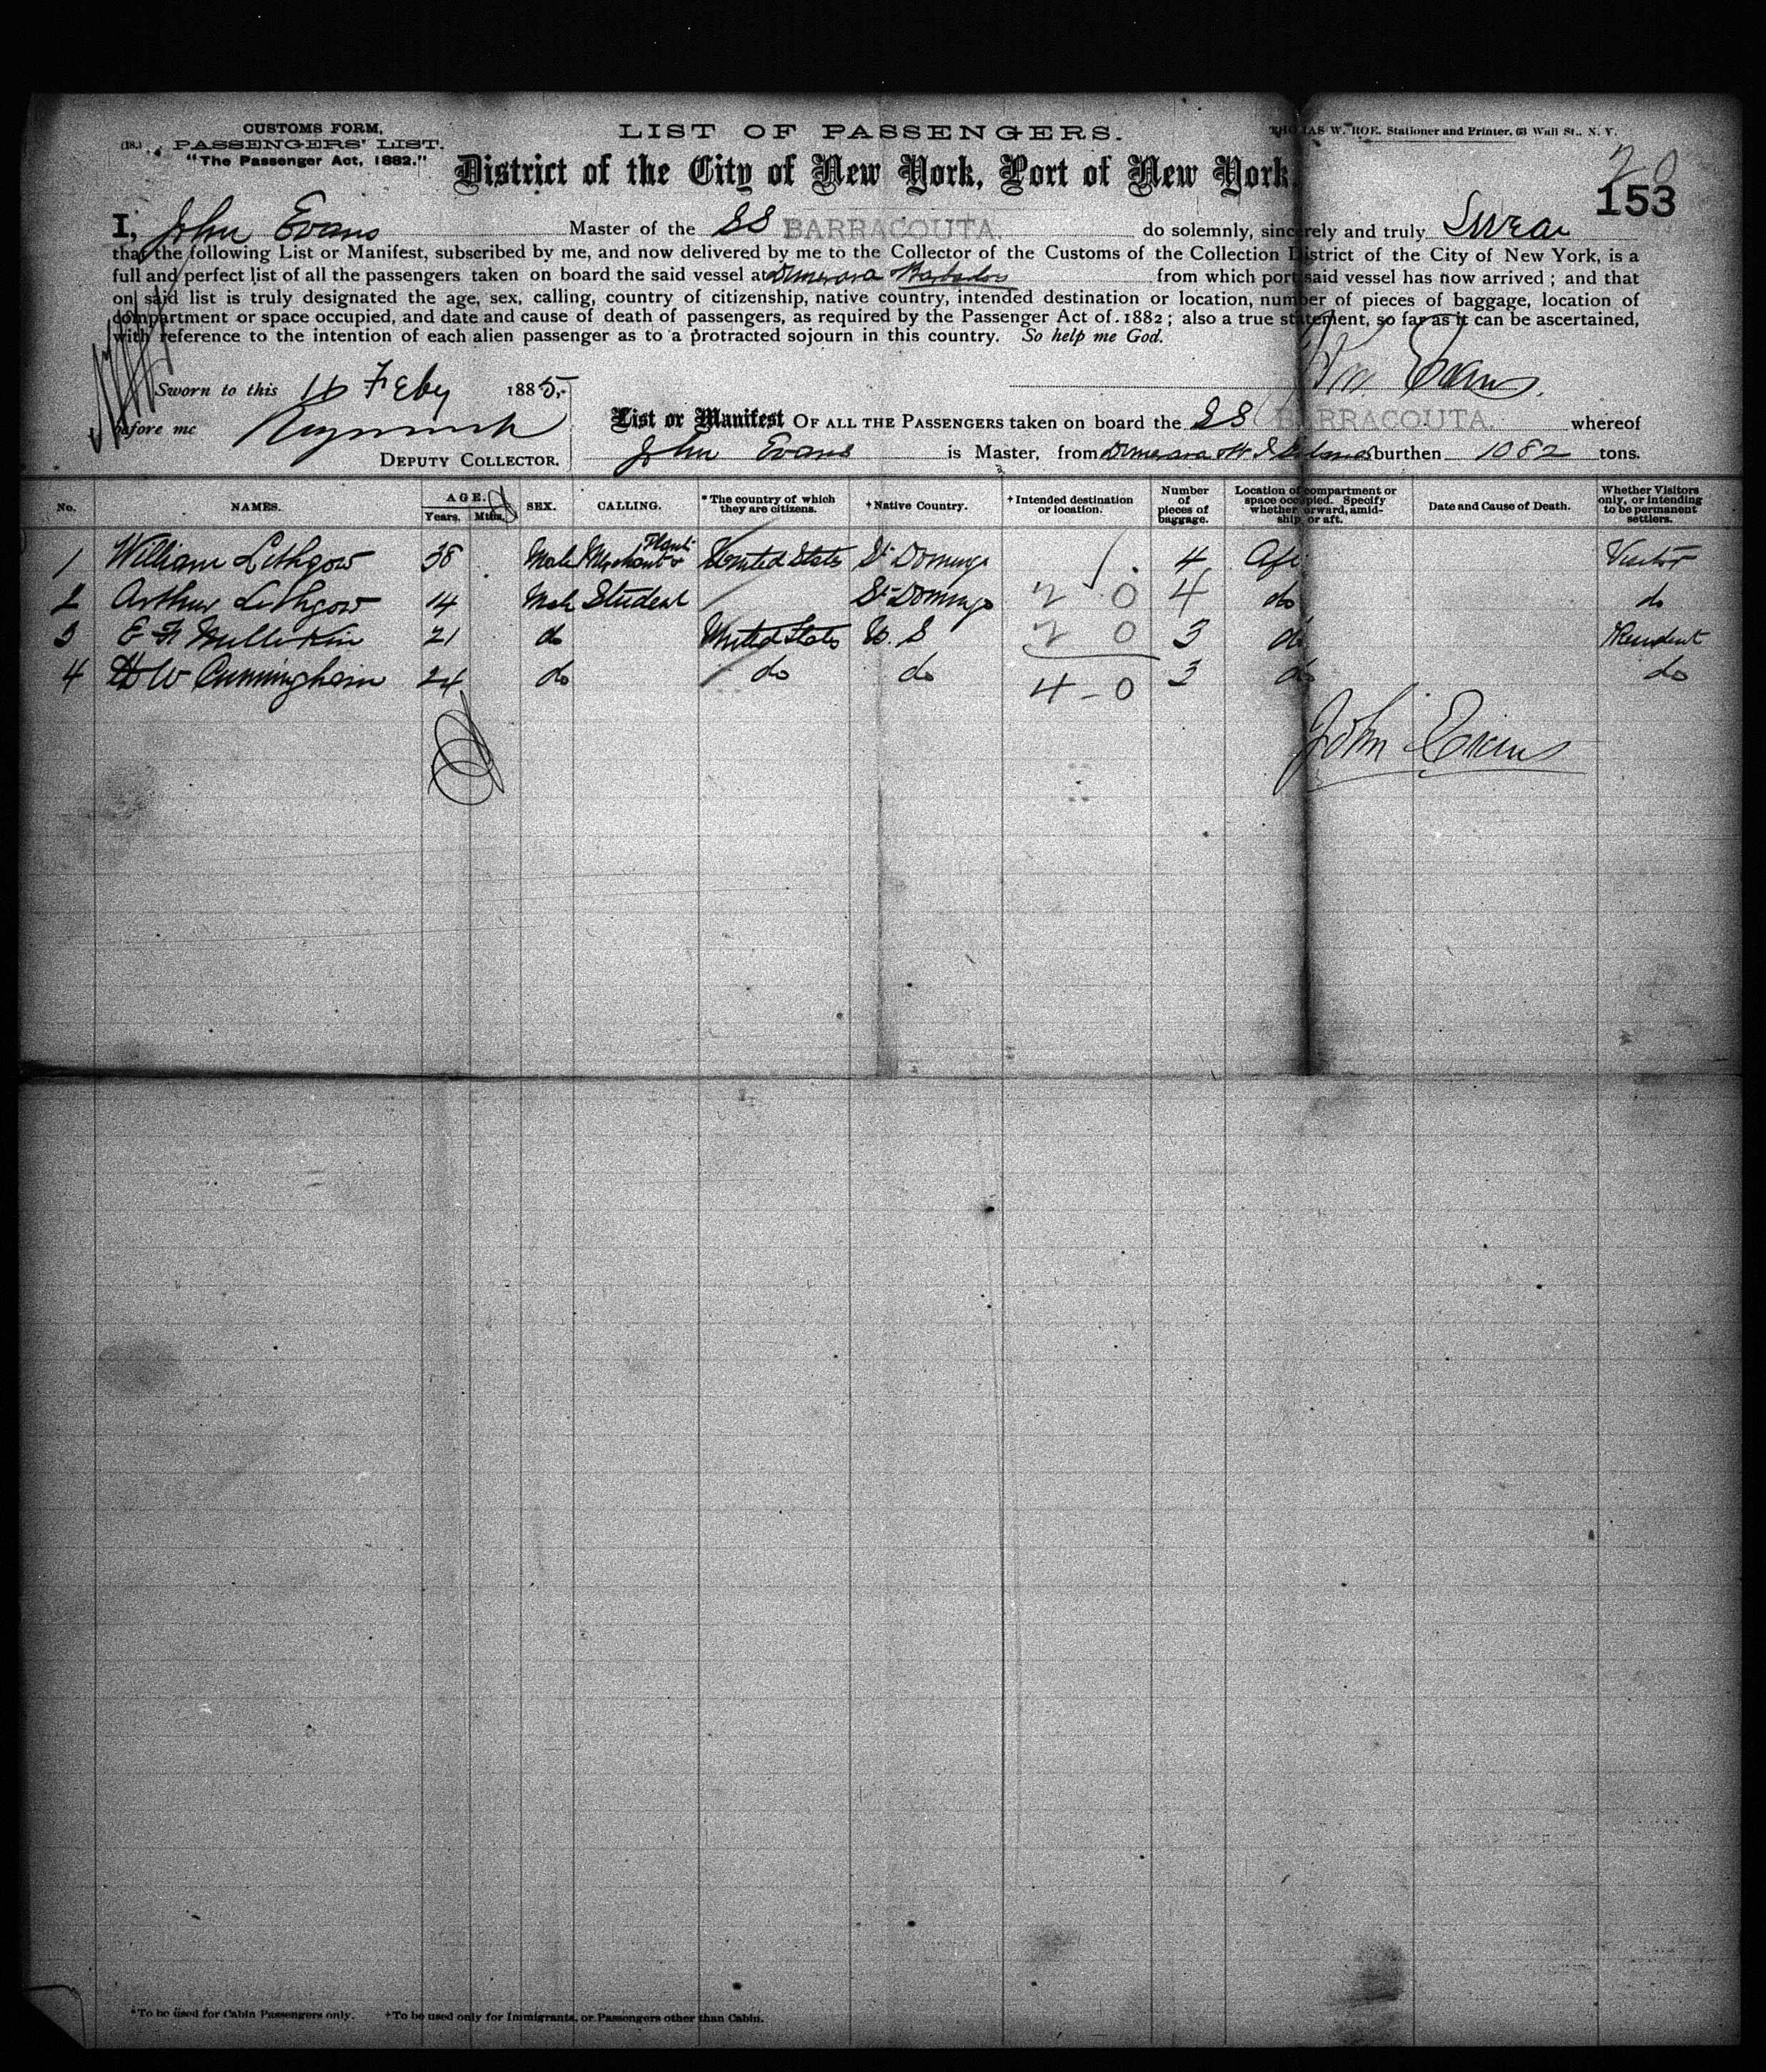 CUSTOMS FORM,
(18.) PASSENGERS' LIST.
"The Passenger Act, 1882."
LIST OF PASSENGERS.
THOMAS W. ROE. Stationer and Printer, 63 Wall St., N. Y.
District of the City of New York, Port of New York.
20
153
I, John Evans Master of the SS BARRACOUTA. do solemnly, sincerely and truly Swear
that the following List or Manifest, subscribed by me, and now delivered by me to the Collector of the Customs of the Collection District of the City of New York, is a
full and perfect list of all the passengers taken on board the said vessel at Demerara Barbados from which port said vessel has now arrived ; and that
on said list is truly designated the age, sex, calling, country of citizenship, native country, intended destination or location, number of pieces of baggage, location of
compartment or space occupied, and date and cause of death of passengers, as required by the Passenger Act of 1882 ; also a true statement, so far as it can be ascertained,
with reference to the intention of each alien passenger as to a protracted sojourn in this country. So help me God.
Evans
Sworn to this 16 Feby 1885,
before me
DEPUTY COLLECTOR.
List or Manifest OF ALL THE PASSENGERS taken on board the SS BARRACOUTA. whereof
John Evans is Master, from Demerara burthen 1082 tons.
No. NAMES. AGE. Years. Mths. SEX. CALLING. *The country of which they are citizens. +Native Country. +Intended destination or location. Number of pieces of baggage. Location of compartment or space occupied. Specify whether forward, amidship, or aft. Date and Cause of Death. Whether Visitors only, or intending to be permanent settlers.
1 William Lithgow 38 Male Merchant United States St Domingo 4 Aft Visitor
2 Arthur Lithgow 14 Male Student St Domingo 2 0 4 do do
3 E H Millikin 21 do United States U. S 2 0 3 do Resident
4 H W Cunningham 24 do do do 4 - 0 3 do do
John Evans
*To be used for Cabin Passengers only. +To be used only for Immigrants, or Passengers other than Cabin.